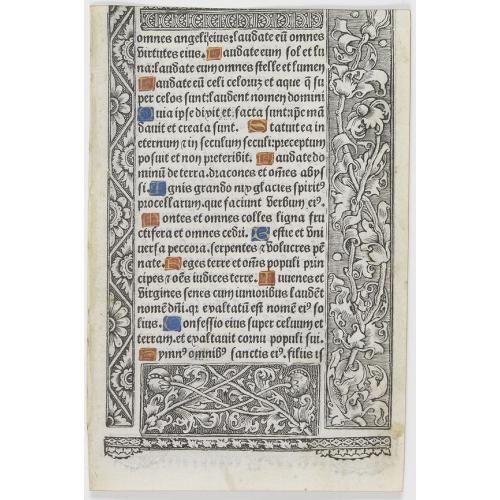 omnes angeli eius: laudate eũ omnes
virtutes eius. Laudate eum sol et lu
na: laudate eum omnes stelle et lumen
Laudate eũ celi celoruꝫ et aque q̃ su
per celos sunt: laudent nomen domini
Quia ipse dixit et facta sunt: ip̃e mã
dauit et creata sunt. Statuit ea in
eternum ⁊ in seculum seculi: preceptum
posuit et non preteribit. Laudate do
minũ de terra. dracones et om̃es aby
ssi. Ignis grando nix glacies spirit⁹
procellarum. que faciunt verbum ei⁹.
Montes et omnes colles ligna fru
ctifera et omnes cedri. Bestie et vni
uersa peccora. serpentes ⁊ volucres pẽ
nate. Reges terre et om̃is populi prin
cipes ⁊ oẽs iudices terre. Iuuenes et
virgines senes cum iunioribus laudẽt
nomen dñi. qr exaltatũ est nomẽ ei⁹ so
lius. Confessio eius super celum et
terram. et exaltauit cornu populi sui.
Hymn⁹ omnib⁹ sanctis ei⁹. filiis is